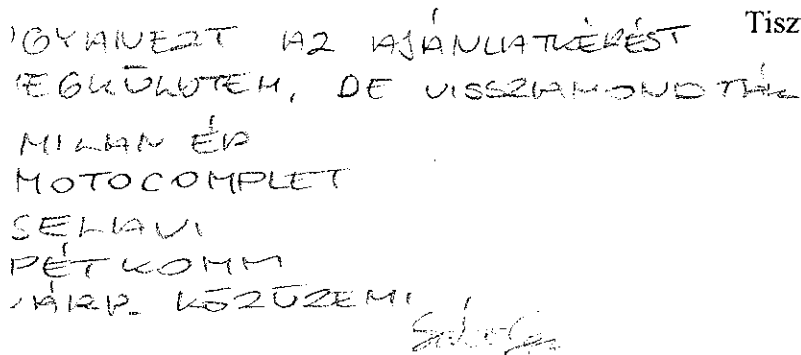 UGYANEZT AZ AJÁNLATKÉRÉST Tisz
MEGKÜLDTEM, DE VISSZAMONDTÁK
MILAN ÉP
MOTOCOMPLET
SELLAVI
PÉTKOMM
VÁRP. KÖZÜZEMI